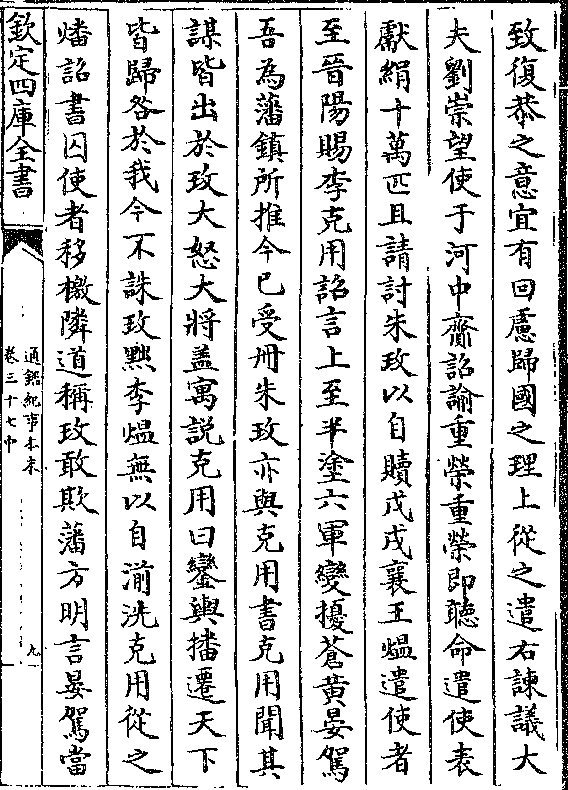 致復恭之意宜有回慮歸國之理上從之遣右諫議大
夫劉崇望使于河中齎詔諭重榮重榮即聽命遣使表
獻絹十萬匹且請討朱玫以自贖戊戌襄王熅遣使者
至晉陽賜李克用詔言上至半塗六軍變擾蒼黃晏駕
吾為藩鎮所推今已受冊朱玫亦與克用書克用聞其
謀皆出於玫大怒大將盖寓說克用曰鑾輿播遷天下
皆歸咎於我今不誅玫黜李熅無以自湔洗克用從之
燔詔書囚使者移檄隣道稱玫敢欺藩方明言晏駕當
欽定四庫全書
通鑑紀事本末
卷三十七中
九